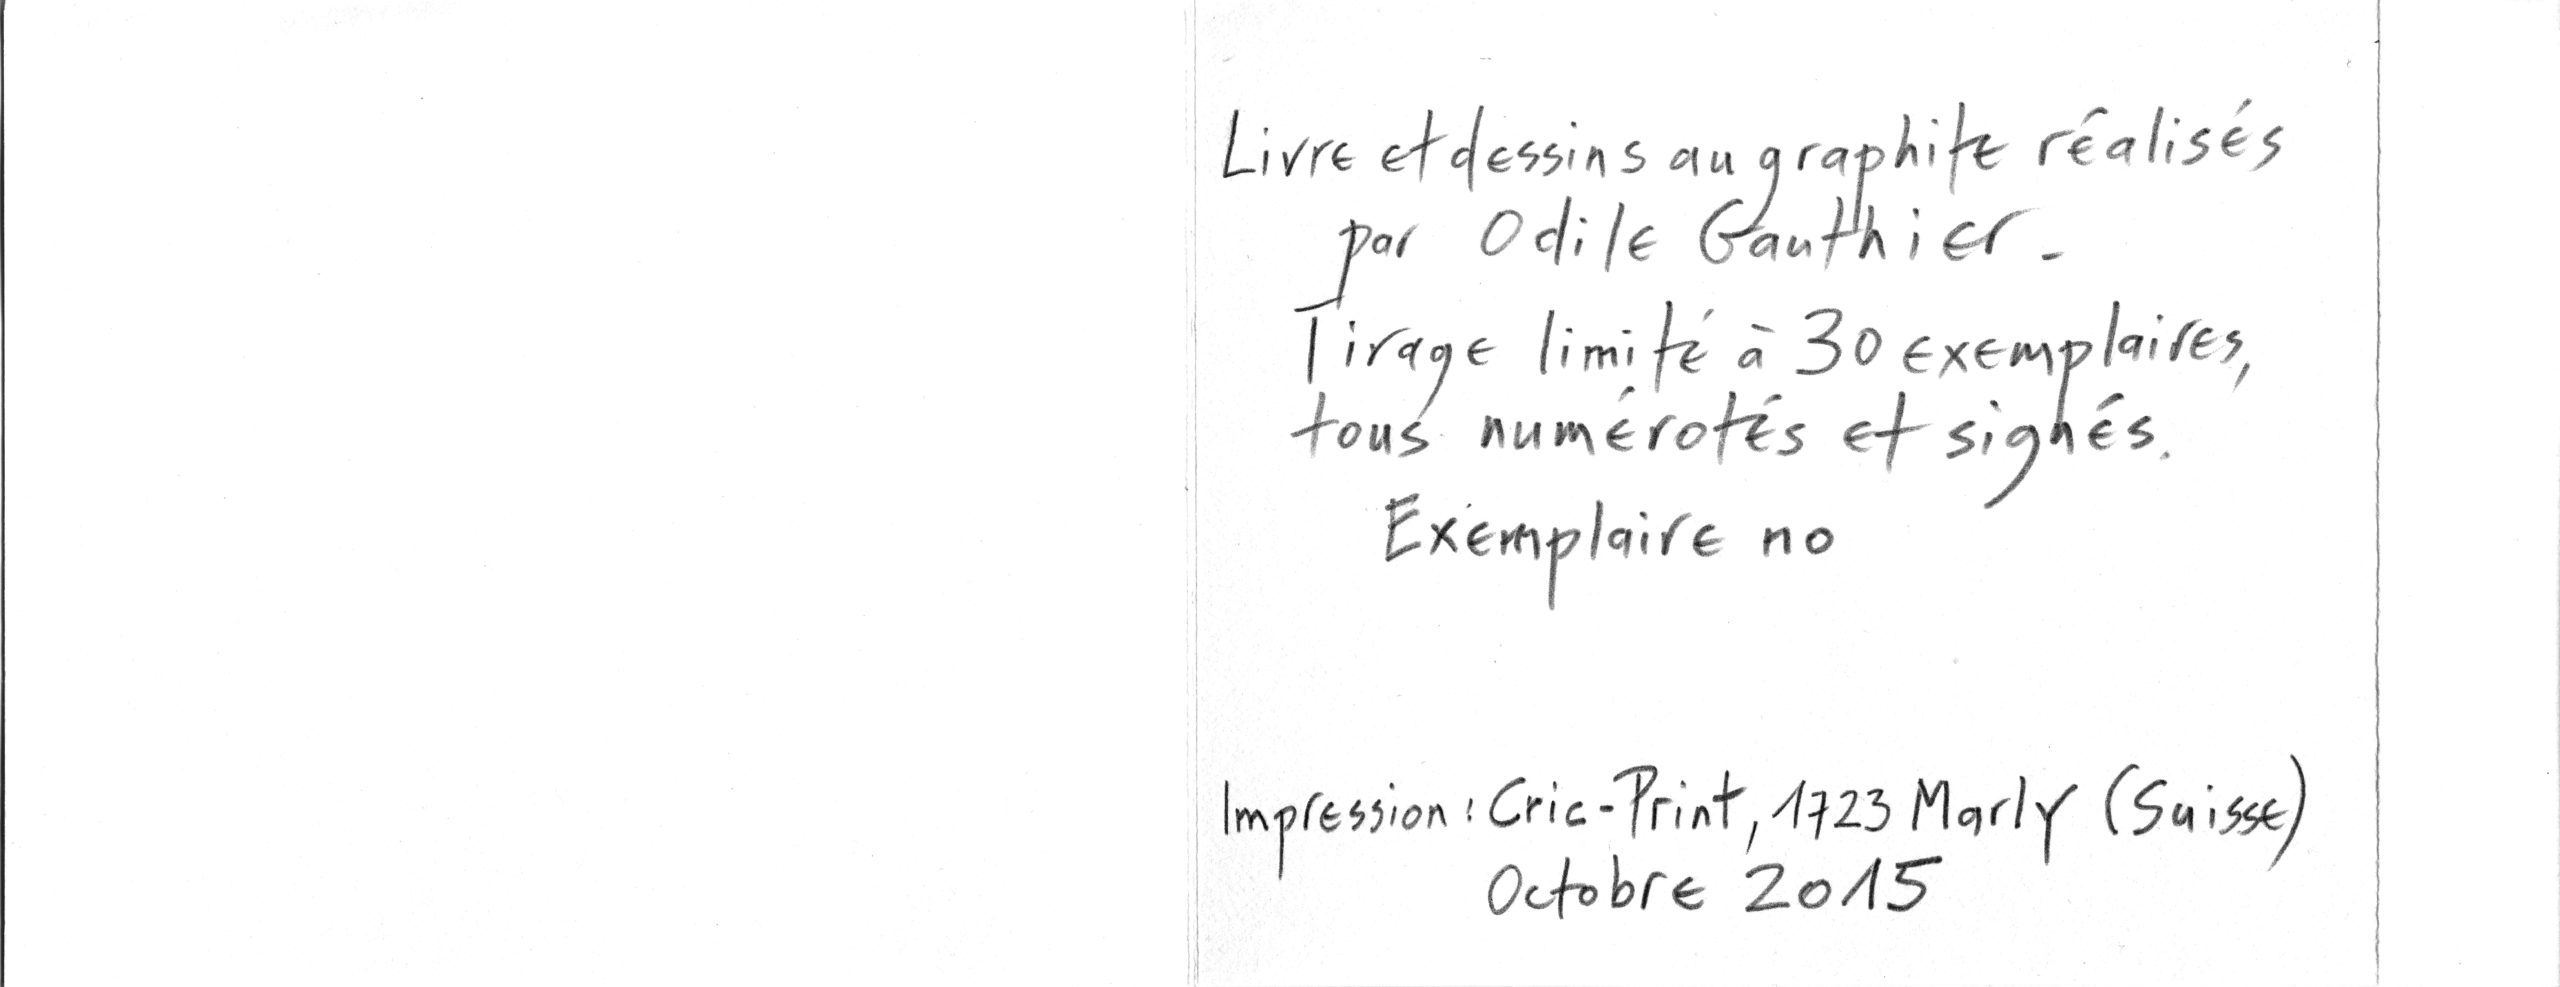 Livre et dessins au graphite réalisés
par Odile Gauthier.
Tirage limité à 30 exemplaires,
tous numérotés et signés.
Exemplaire no
Impression : Cric-Print, 1723 Marly (Suisse)
Octobre 2015